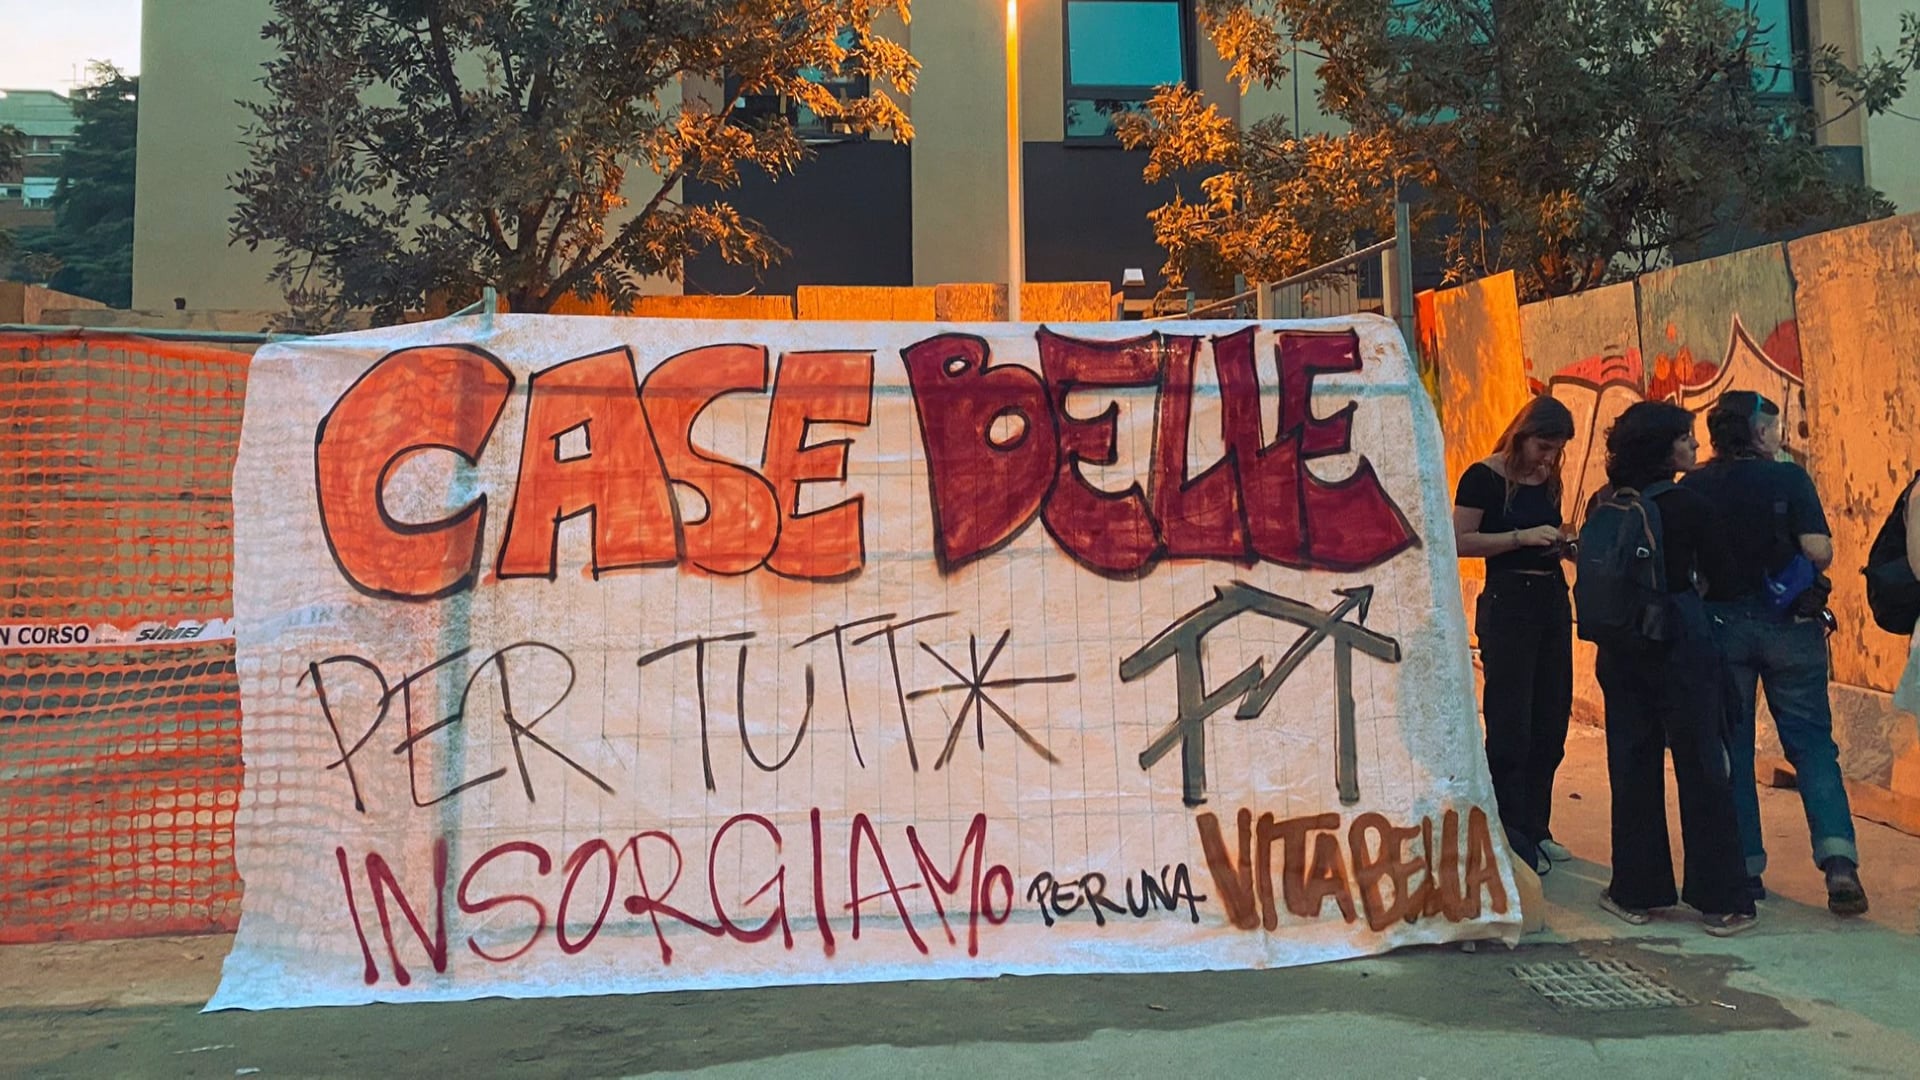 CASE BELLE
PER TUTT*
INSORGIAMO PER UNA VITA BELLA
N CORSO SIMEI